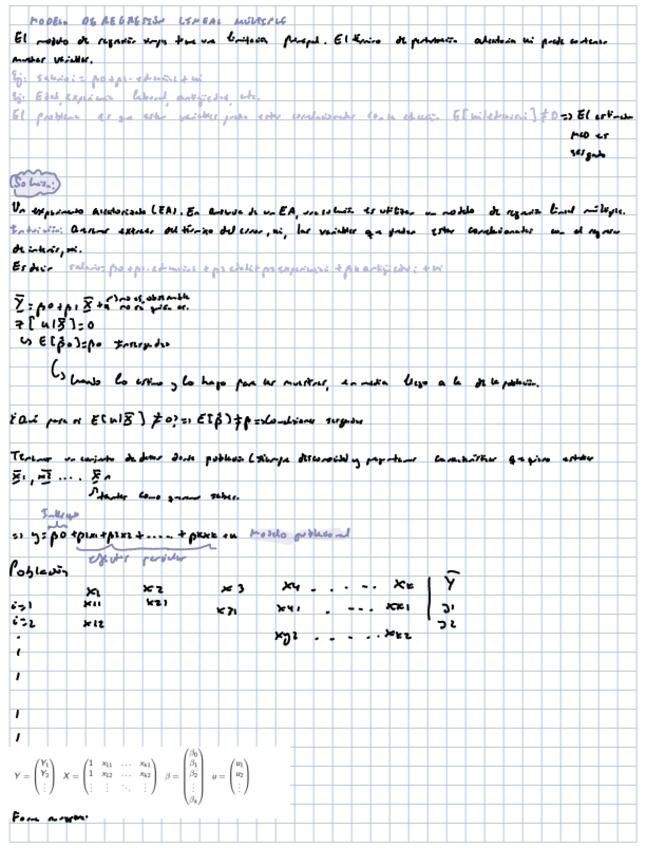 MODELO DE REGRESIÓN LINEAL MÚLTIPLE
El modelo de regresión simple tiene una limitación principal. El término de perturbación aleatoria ui puede contener
muchas variables.
Ej: salario i = β0+β1·educación i + ui
Ej: Edad, experiencia laboral, antigüedad, etc.
El problema es que estas variables pueden estar correlacionadas con la educación E[ui|educación i] ≠ 0 => El estimador
MCO es
sesgado
Solución:
Un experimento aleatorizado (EA). En ausencia de un EA, una solución es utilizar un modelo de regresión lineal múltiple.
Intuición: Queremos extraer del término del error, ui, las variables que pueden estar correlacionadas con el regresor
de interés, xi.
Es decir salario i = β0 + β1·educación i + β2 edad i + β3 experiencia i + β4 antigüedad i + ui
Y = β0 + β1 X + u no es observable
E[u|X] = 0
E[β0] = β0 Insesgado
cuando lo estimo y lo hago para las muestras, en media llego a la de la población.
¿Qué pasa si E[u|X] ≠ 0? => E[β] ≠ β => Conclusiones sesgadas
Tenemos un conjunto de datos de una población (siempre desconocida) y características que quiero estudiar
X1, X2 .... Xn
tantas como queramos saber.
=> y = β0 + β1x1 + β2x2 + ..... + βkxk + u Modelo poblacional
efectos parciales
Población
x1 x2 x3 x4 . . . . . xk | Y
i=1 x11 x21 x31 x41 . --- xk1 y1
i=2 x12 x42 . - - . . . xk2 y2
Y = (Y1 Y2 ⋮) X = (1 x11 ⋯ xk1 1 x12 ⋯ xk2 ⋮ ⋮ ⋱ ⋮) β = (β0 β1 β2 ⋮ βk) u = (u1 u2 ⋮)
Forma